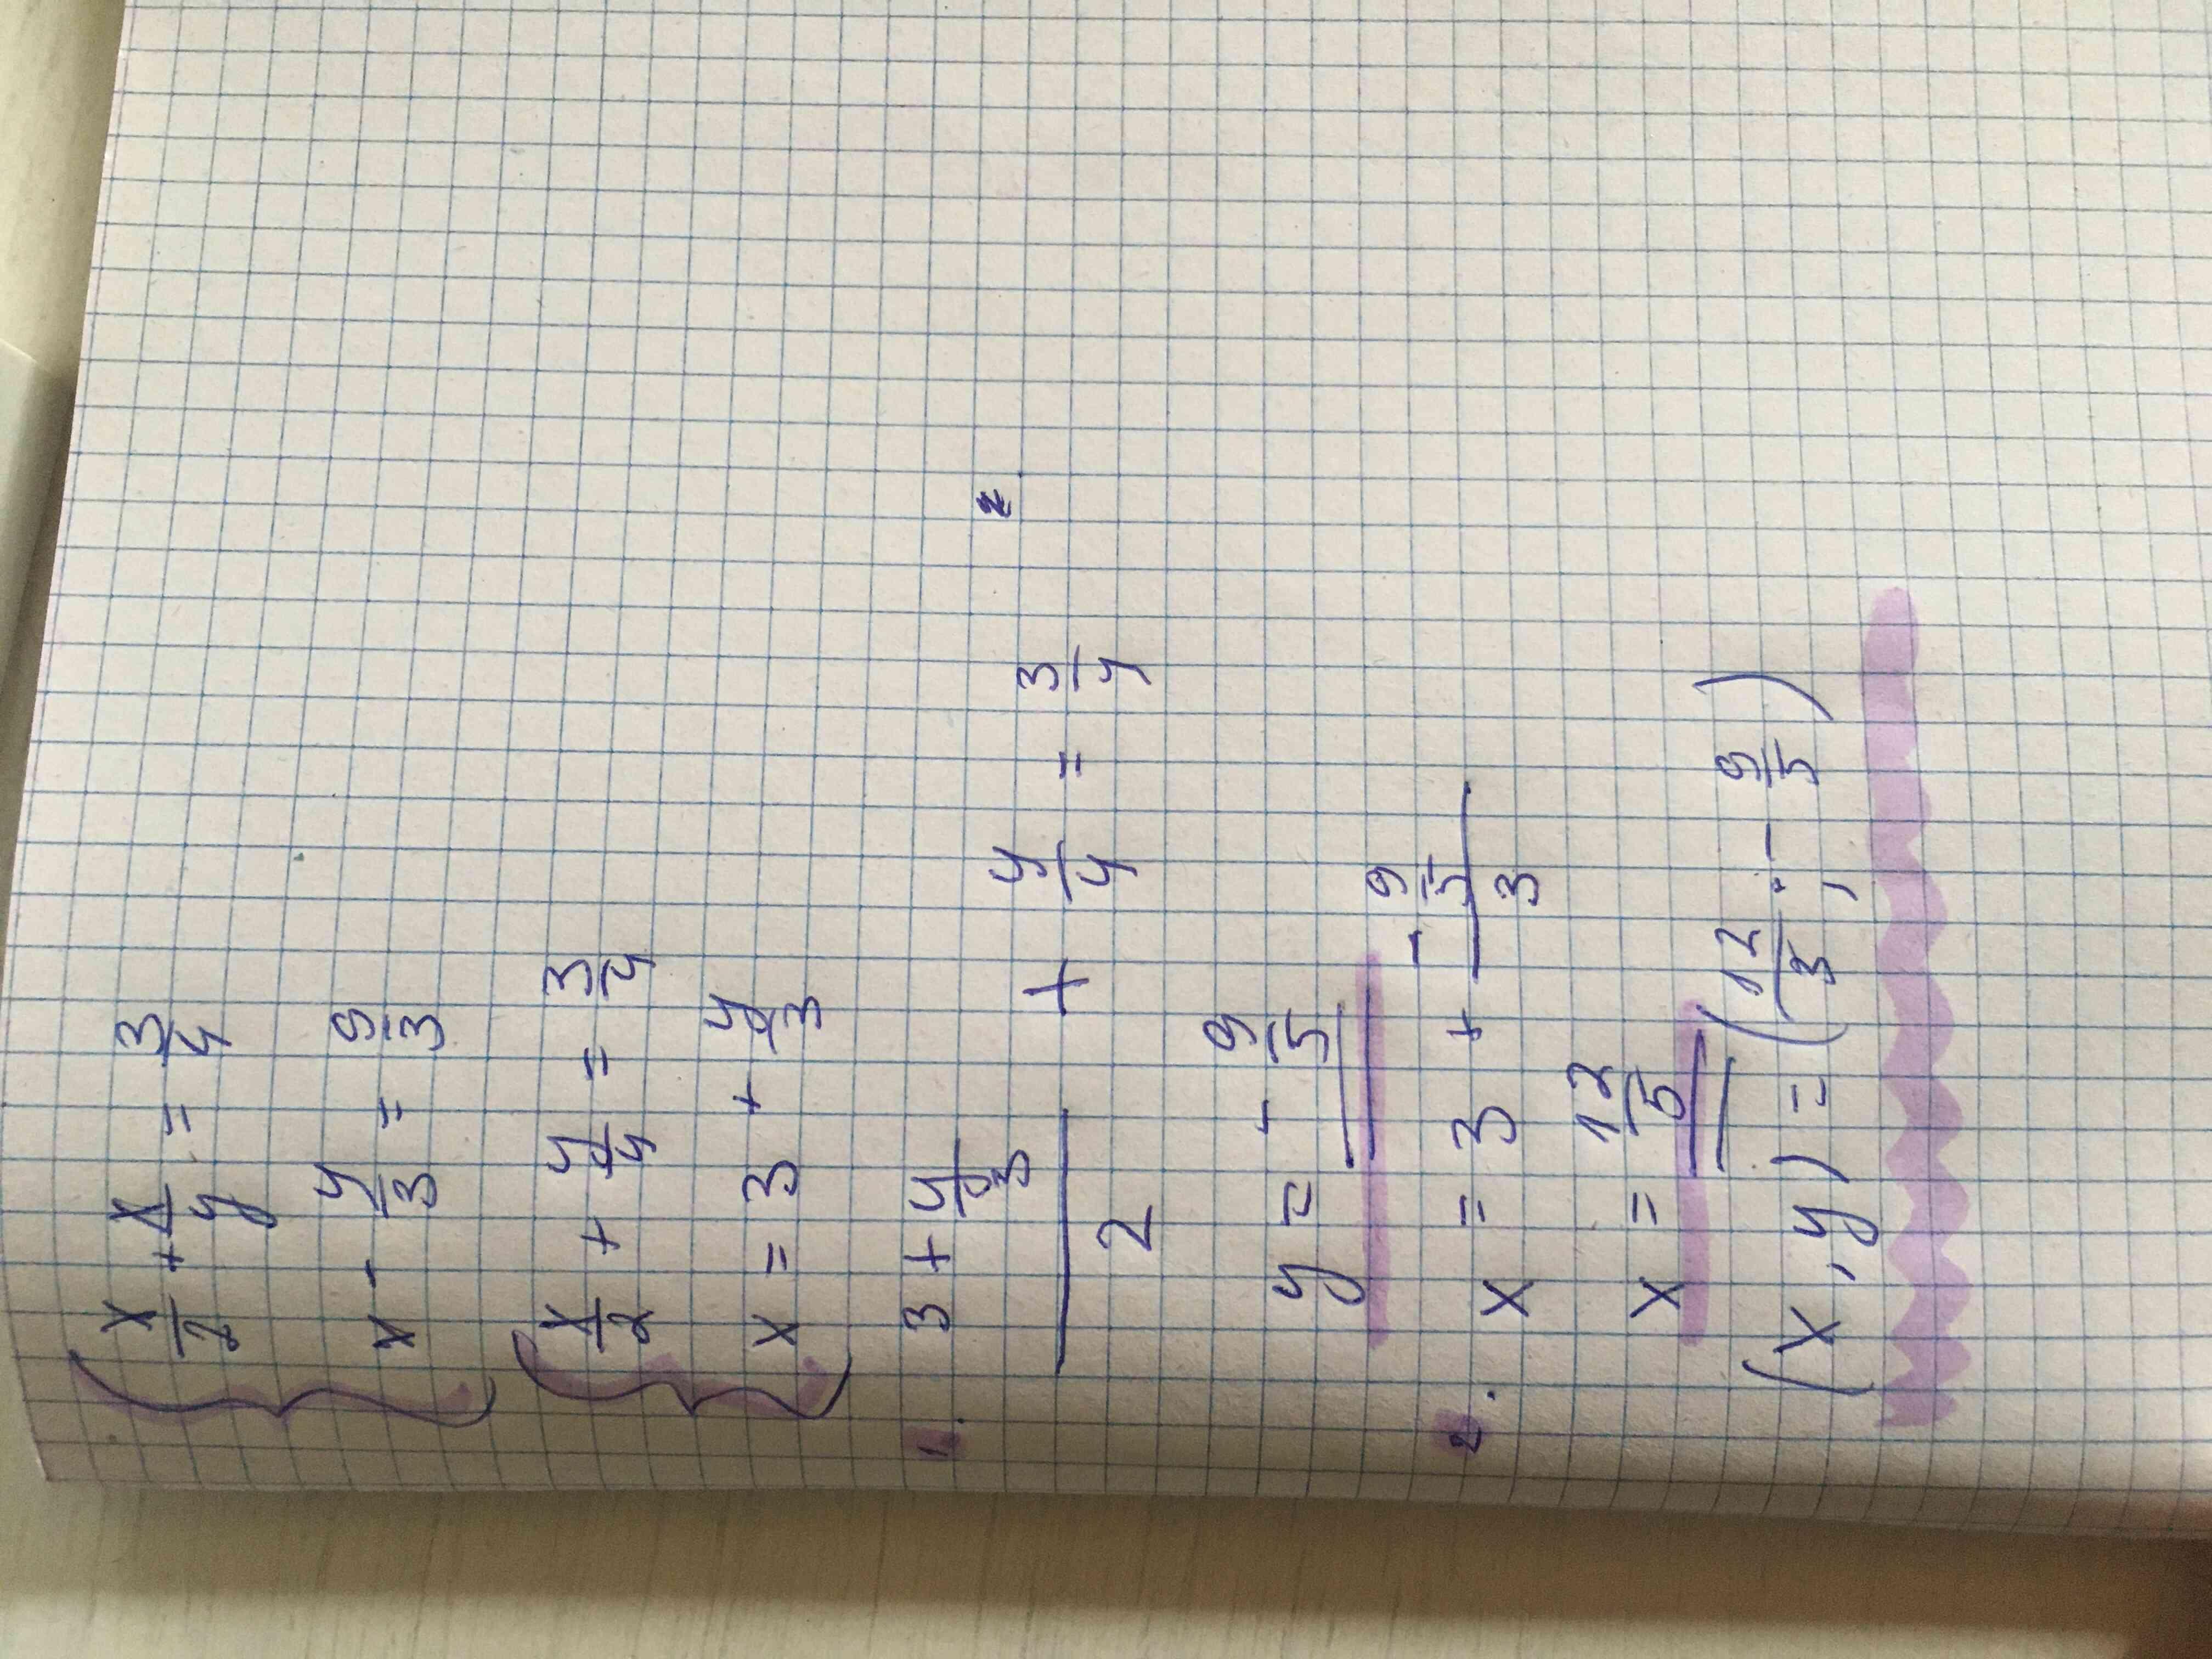 x/2 + x/y = 3/4
x - y/3 = 9/3
x/2 + y/4 = 3/4
x = 3 + y/3
1. (3 + y/3)/2 + y/4 = 3/4
y = - 9/5
2. x = 3 + (- 9/5)/3
x = 12/5
(x, y) = (12/3 ; - 9/5)